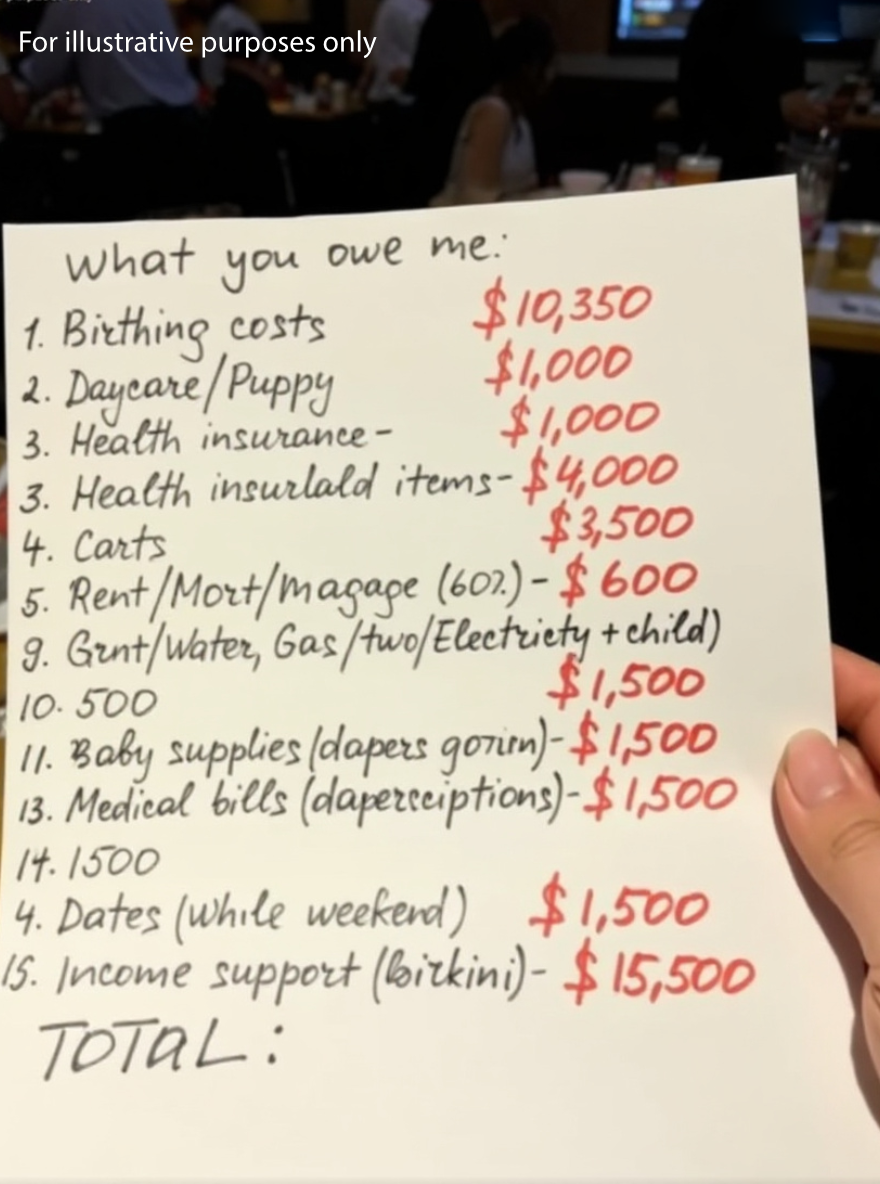 For illustrative purposes only
What you owe me:
1. Birthing costs $10,350
2. Daycare/Puppy $1,000
3. Health insurance- $1,000
3. Health insurlald items- $4,000
4. Carts $3,500
5. Rent/Mort/magage (60%)- $600
9. Grnt/Water, Gas/two/Electriety + child)
10. 500 $1,500
11. Baby supplies (dapers gorırn)- $1,500
13. Medical bills (daperseiptions)- $1,500
14. 1500
4. Dates (while weekend) $1,500
15. Income support (birkini)- $15,500
TOTAL: